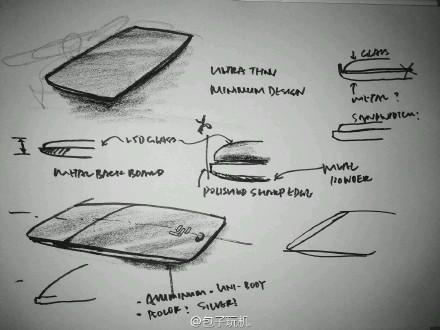 ULTRA THIN
MINIMUM DESIGN
GLASS
METAL?
SANDWICH?
GLASS
METAL BACK BOARD
POLISHED SHARP EDGE
METAL
POWDER
- ALUMINUM - UNI-BODY
- COLOR? SILVER?
@包子玩机